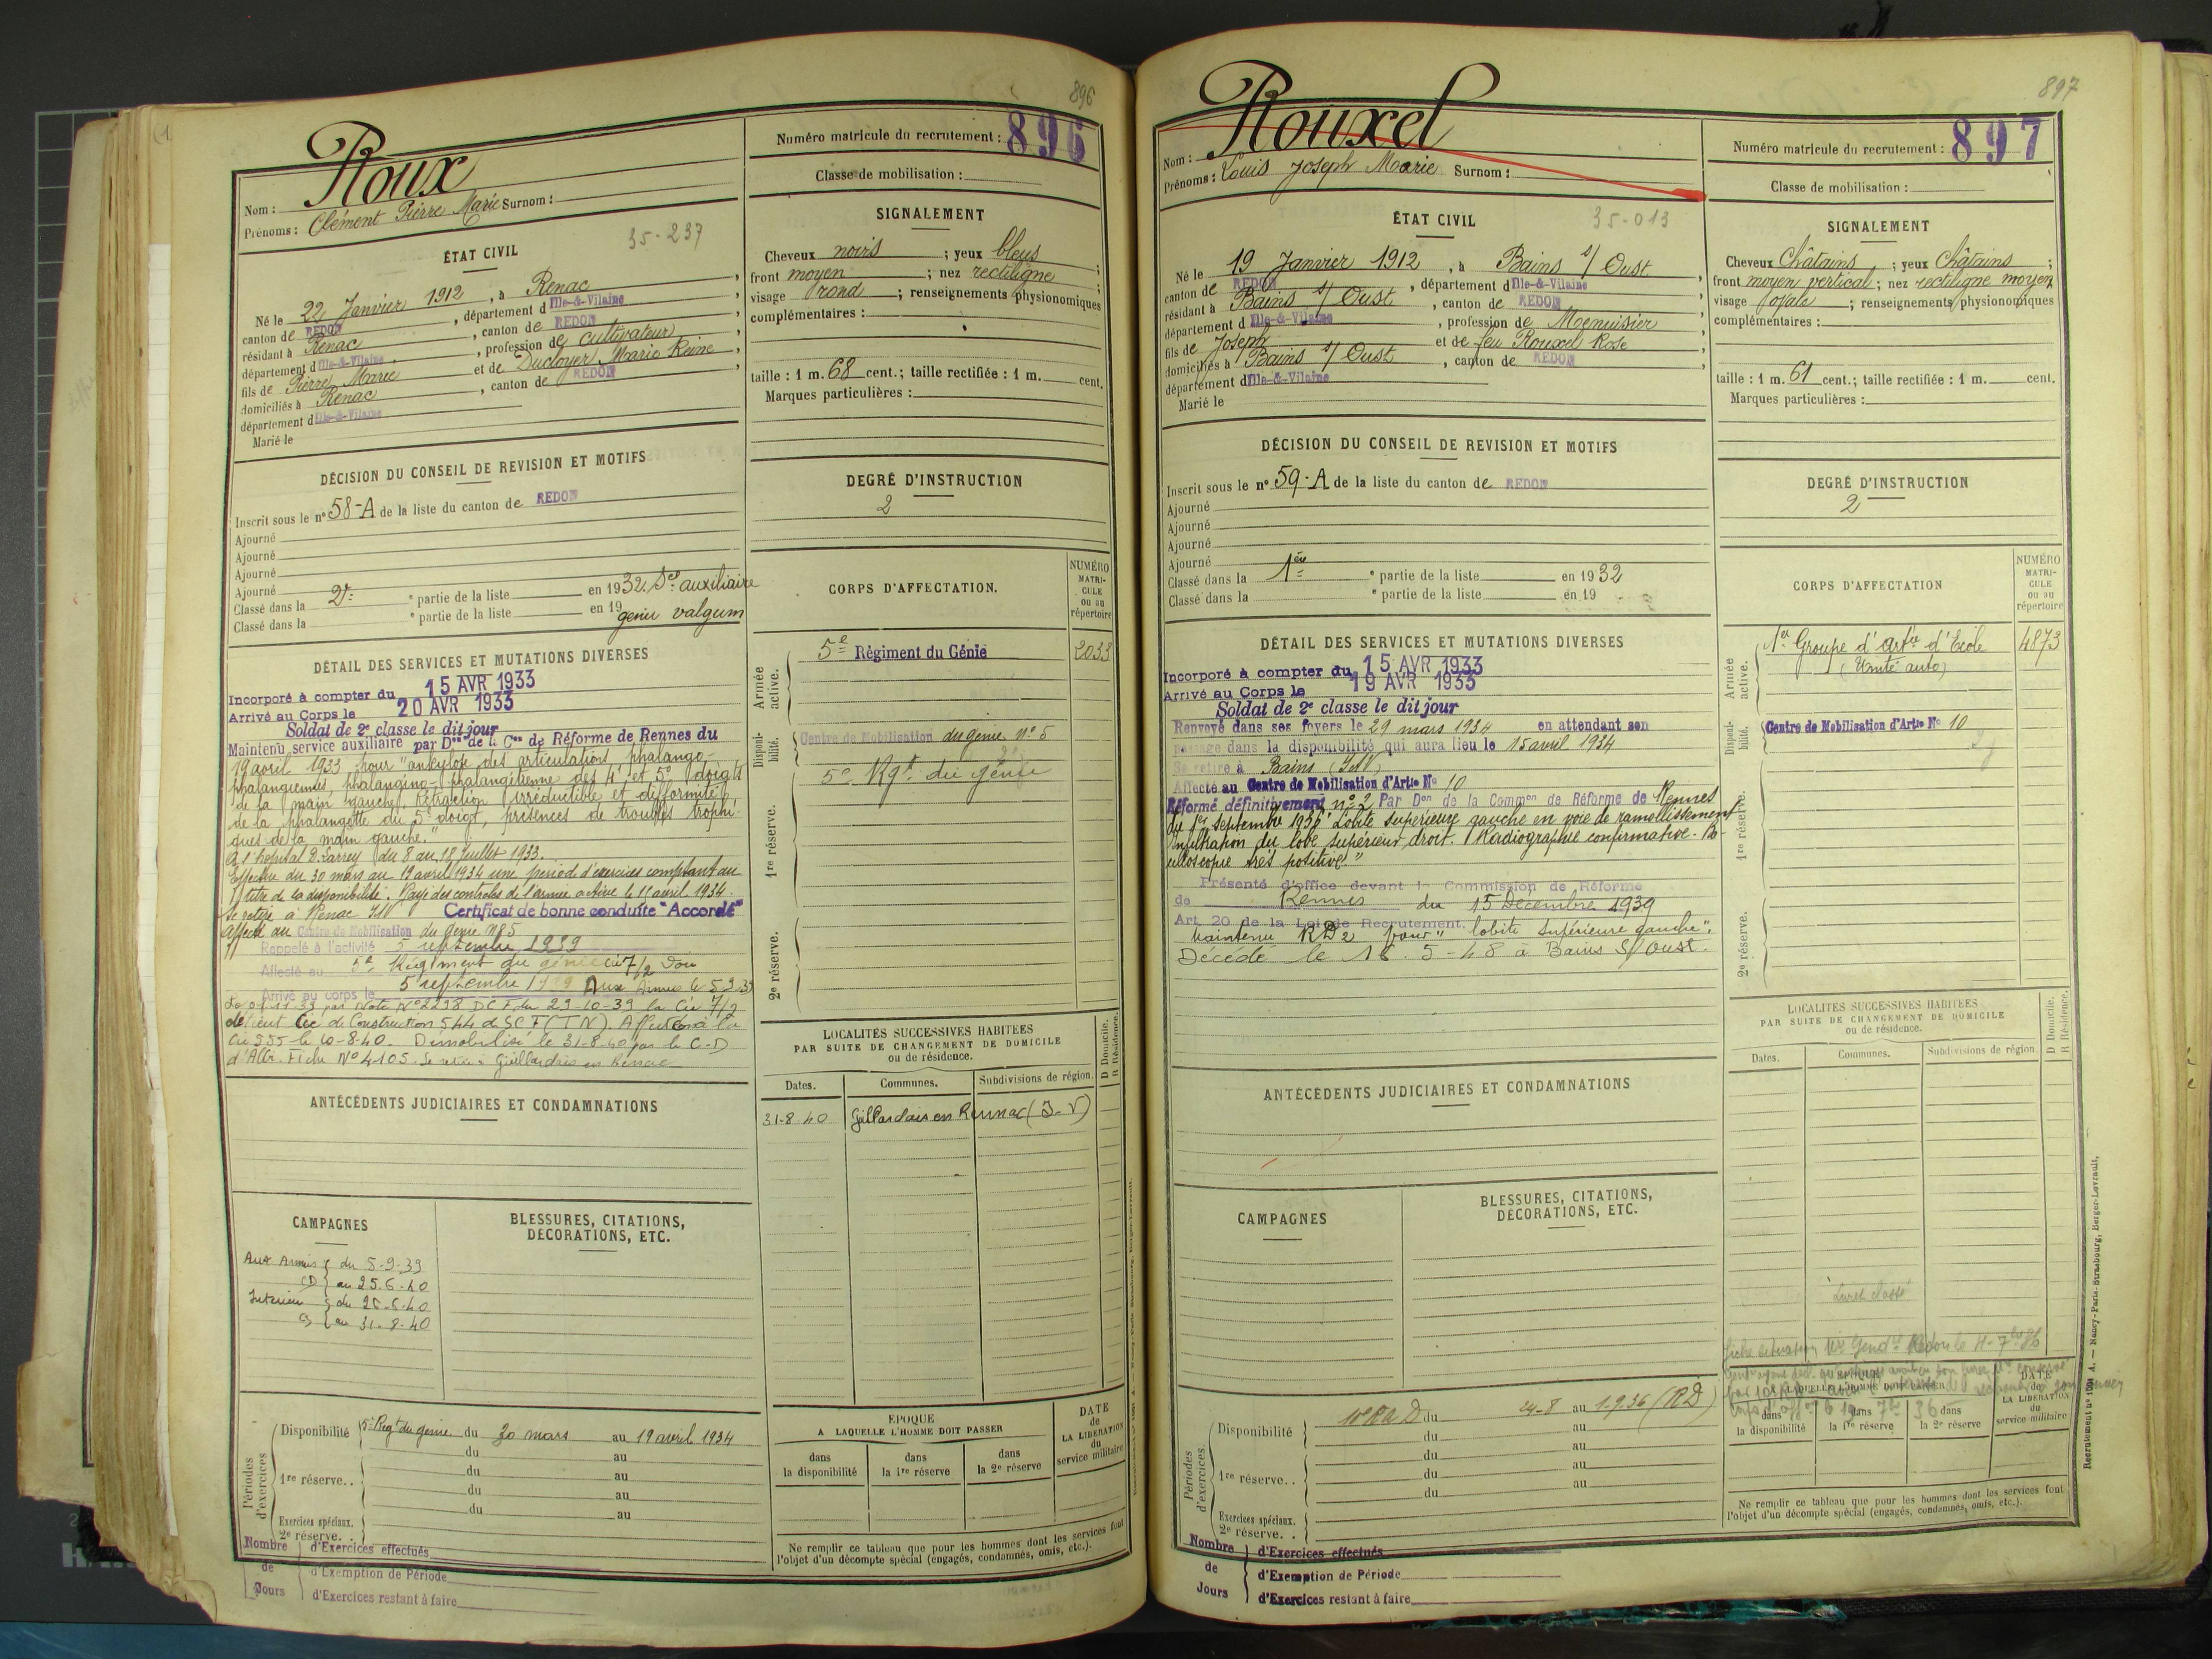 896
Roux
Nom :
Prénoms : Clément Pierre Marie Surnom :
Numéro matricule du recrutement : 896
Classe de mobilisation :
ÉTAT CIVIL
35-237
Né le 22 Janvier 1912, à Renac,
canton de REDON, département d Ille-&-Vilaine,
résidant à Renac, canton de REDON,
département d Ille-&-Vilaine, profession de cultivateur,
fils de Pierre Marie et de Ducloyer Marie Reine,
domiciliés à Renac, canton de REDON,
département d Ille-&-Vilaine
Marié le
SIGNALEMENT
Cheveux noirs ; yeux bleus ;
front moyen ; nez rectiligne ;
visage rond ; renseignements physionomiques
complémentaires :
taille : 1 m. 68 cent.; taille rectifiée : 1 m. cent.
Marques particulières :
DÉCISION DU CONSEIL DE REVISION ET MOTIFS
Inscrit sous le n° 58-A de la liste du canton de REDON
Ajourné
Ajourné
Ajourné
Ajourné
Classé dans la 2e ° partie de la liste en 1932. Sce auxiliaire
Classé dans la ° partie de la liste en 19 genu valgum
DEGRÉ D'INSTRUCTION
2
DÉTAIL DES SERVICES ET MUTATIONS DIVERSES
Incorporé à compter du 15 AVR 1933
Arrivé au Corps le 20 AVR 1933
Soldat de 2e classe le dit jour
Maintenu service auxiliaire par Don de la Con de Réforme de Rennes du
19 avril 1933 pour "ankylose des articulations, phalango-
phalangiennes, phalangino-phalangétienne des 4e et 5e doigts
de la main gauche. Rétraction irréductible et difformité
de la phalangette du 5e doigt, présences de troubles trophi-
ques de la main gauche."
A l'hopital D. Larrey du 8 au 18 Juillet 1933.
Effectue du 30 mars au 19 avril 1934 une période d'exercices comptant au
titre de la disponibilité. Rayé des contrôles de l'armée active le avril 1934.
Se retire à Renac I&V Certificat de bonne conduite "Accordé"
Affecté au Centre de Mobilisation du Génie N° 5
Rappelé à l'activité 5 septembre 1939
Affecté au 5e Régiment du génie Cie 7/2
Arrivé au corps le 5 septembre 1939 Aux Armées le 5.9.39
par Note N° 2298 DCF du 29-10-39 la Cie 7/2
devient Cie de Construction 544 de SCF (TN). Affecté à la
Cie 555 le 10-8-40. Démobilisé le 31-8-40 par le C-D
d'Albi. Fiche N° 4105. Se retire Gaillardais en Renac
CORPS D'AFFECTATION.
NUMÉRO MATRICULE ou au répertoire
Armée active.
5e Régiment du Génie 2033
Disponibilité.
Centre de Mobilisation du génie N° 5
1re réserve.
5e Rgt du génie
2e réserve.
LOCALITÉS SUCCESSIVES HABITÉES
PAR SUITE DE CHANGEMENT DE DOMICILE
ou de résidence.
Dates. Communes. Subdivisions de région. D Domicile. R Résidence.
31-8-40 Gaillardais en Renac (I-V)
ANTÉCÉDENTS JUDICIAIRES ET CONDAMNATIONS
CAMPAGNES
Aux Armées du 5-9-39
CD au 25-6-40
Intérieur du 26-6-40
au 31-8-40
BLESSURES, CITATIONS,
DÉCORATIONS, ETC.
Périodes d'exercices
Disponibilité 5e Regt du génie du 30 mars au 19 avril 1934
du au
1re réserve.. du au
du au
du au
Exercices spéciaux.
2e réserve. .
Nombre de Jours
d'Exercices effectués
d'Exemption de Période
d'Exercices restant à faire
ÉPOQUE
A LAQUELLE L'HOMME DOIT PASSER
dans la disponibilité
dans la 1re réserve
dans la 2e réserve
DATE de LA LIBÉRATION du service militaire
Ne remplir ce tableau que pour les hommes dont les services font
l'objet d'un décompte spécial (engagés, condamnés, omis, etc.).
897
Rouxel
Nom :
Prénoms : Louis Joseph Marie Surnom :
Numéro matricule du recrutement : 897
Classe de mobilisation :
ÉTAT CIVIL
35-013
Né le 19 Janvier 1912, à Bains s/ Oust,
canton de REDON, département d Ille-&-Vilaine
résidant à Bains s/ Oust, canton de REDON
département d Ille-&-Vilaine, profession de Menuisier,
fils de Joseph et de feu Rouxel Rose,
domiciliés à Bains s/ Oust, canton de REDON
département d Ille-&-Vilaine
Marié le
SIGNALEMENT
Cheveux Châtains ; yeux Châtains ;
front moyen vertical ; nez rectiligne moyen
visage ovale ; renseignements physionomiques
complémentaires :
taille : 1 m. 61 cent.; taille rectifiée : 1 m. cent.
Marques particulières :
DÉCISION DU CONSEIL DE REVISION ET MOTIFS
Inscrit sous le n° 59-A de la liste du canton de REDON
Ajourné
Ajourné
Ajourné
Ajourné
Classé dans la 1ère ° partie de la liste en 1932
Classé dans la ° partie de la liste en 19
DEGRÉ D'INSTRUCTION
2
DÉTAIL DES SERVICES ET MUTATIONS DIVERSES
Incorporé à compter du 15 AVR 1933
Arrivé au Corps le 19 AVR 1933
Soldat de 2e classe le dit jour
Renvoyé dans ses foyers le 29 mars 1934 en attendant son
passage dans la disponibilité qui aura lieu le 15 avril 1934
Se retire à Bains (I&V)
Affecté au Centre de Mobilisation d'Artie N° 10
Réformé définitivement n° 2 Par Don de la Common de Réforme de Rennes
du 1er septembre 193 "Lobite supérieure gauche en voie de ramollissement
Infiltration du lobe supérieur droit. Radiographie confirmative. Ba-
cilloscopie très positive."
Présenté d'office devant la Commission de Réforme
de Rennes du 15 Décembre 1939
Art. 20 de la Loi de Recrutement.
Maintenu RD2 pour "lobite supérieure gauche".
Décédé le 16-5-48 à Bains S/Oust.
CORPS D'AFFECTATION
NUMÉRO MATRICULE ou au répertoire
Armée active.
1er Groupe d'Artie d'Ecole 4873
(Unité auto)
Disponibilité.
Centre de Mobilisation d'Artie N° 10
1re réserve.
2e réserve.
LOCALITÉS SUCCESSIVES HABITÉES
PAR SUITE DE CHANGEMENT DE DOMICILE
ou de résidence.
Dates. Communes. Subdivisions de région. D Domicile. R Résidence.
Livret classé
ANTÉCÉDENTS JUDICIAIRES ET CONDAMNATIONS
CAMPAGNES
BLESSURES, CITATIONS,
DÉCORATIONS, ETC.
Périodes d'exercices
Disponibilité 10e RAD du 24-8 au 1.9.36 (RD)
du au
du au
1re réserve. . du au
du au
Exercices spéciaux.
2e réserve. .
Nombre de Jours
d'Exercices effectués
d'Exemption de Période
d'Exercices restant à faire
ÉPOQUE
A LAQUELLE L'HOMME DOIT PASSER
dans la disponibilité
dans la 1re réserve
dans la 2e réserve
DATE de LA LIBÉRATION du service militaire
Ne remplir ce tableau que pour les hommes dont les services font
l'objet d'un décompte spécial (engagés, condamnés, omis, etc.).
Recrutement n° 1004 A. — Nancy-Paris-Strasbourg, Berger-Levrault,